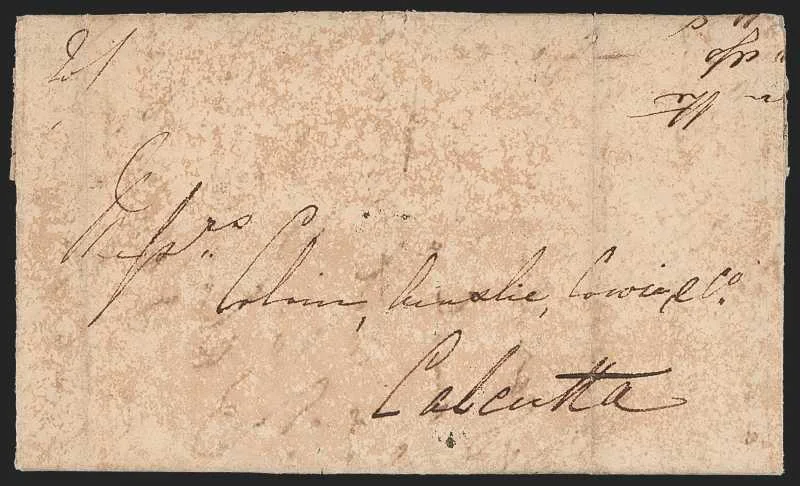 Messrs
Colvin, Ainslie, Cowie, & Co.
Calcutta